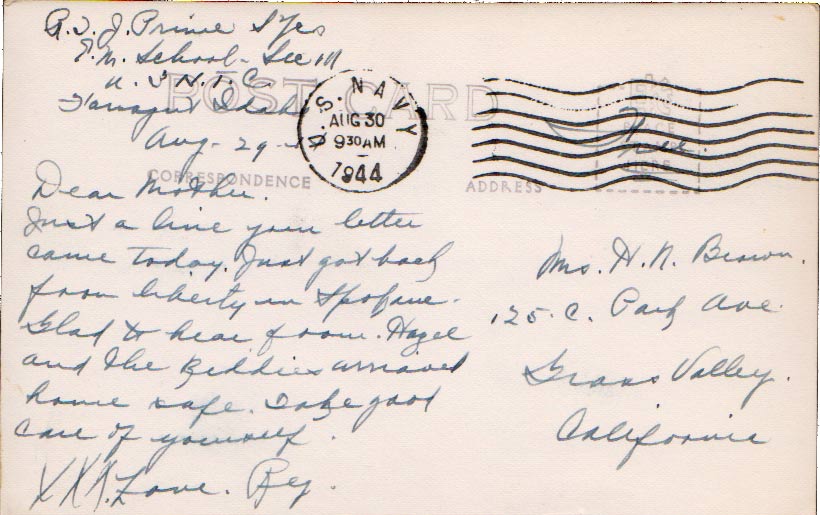 R. J. J. Prime S 1/c
E.M. School - Sec 111
U. S. N. T. C.
Farragut Idaho
Aug - 29 -
POST CARD
U. S. NAVY
AUG 30
9 30 AM
1944
Free.
PLACE
HERE
CORRESPONDENCE
ADDRESS
Dear Mother.
Just a line your letter
came today. Just got back
from liberty in Spokane.
Glad to hear from. Hazel
and the Kiddies arrived
home safe. Take good
care of yourself.
XXX. Love. Reg.
Mrs. H. N. Brown.
125. C. Park Ave.
Grass Valley.
California